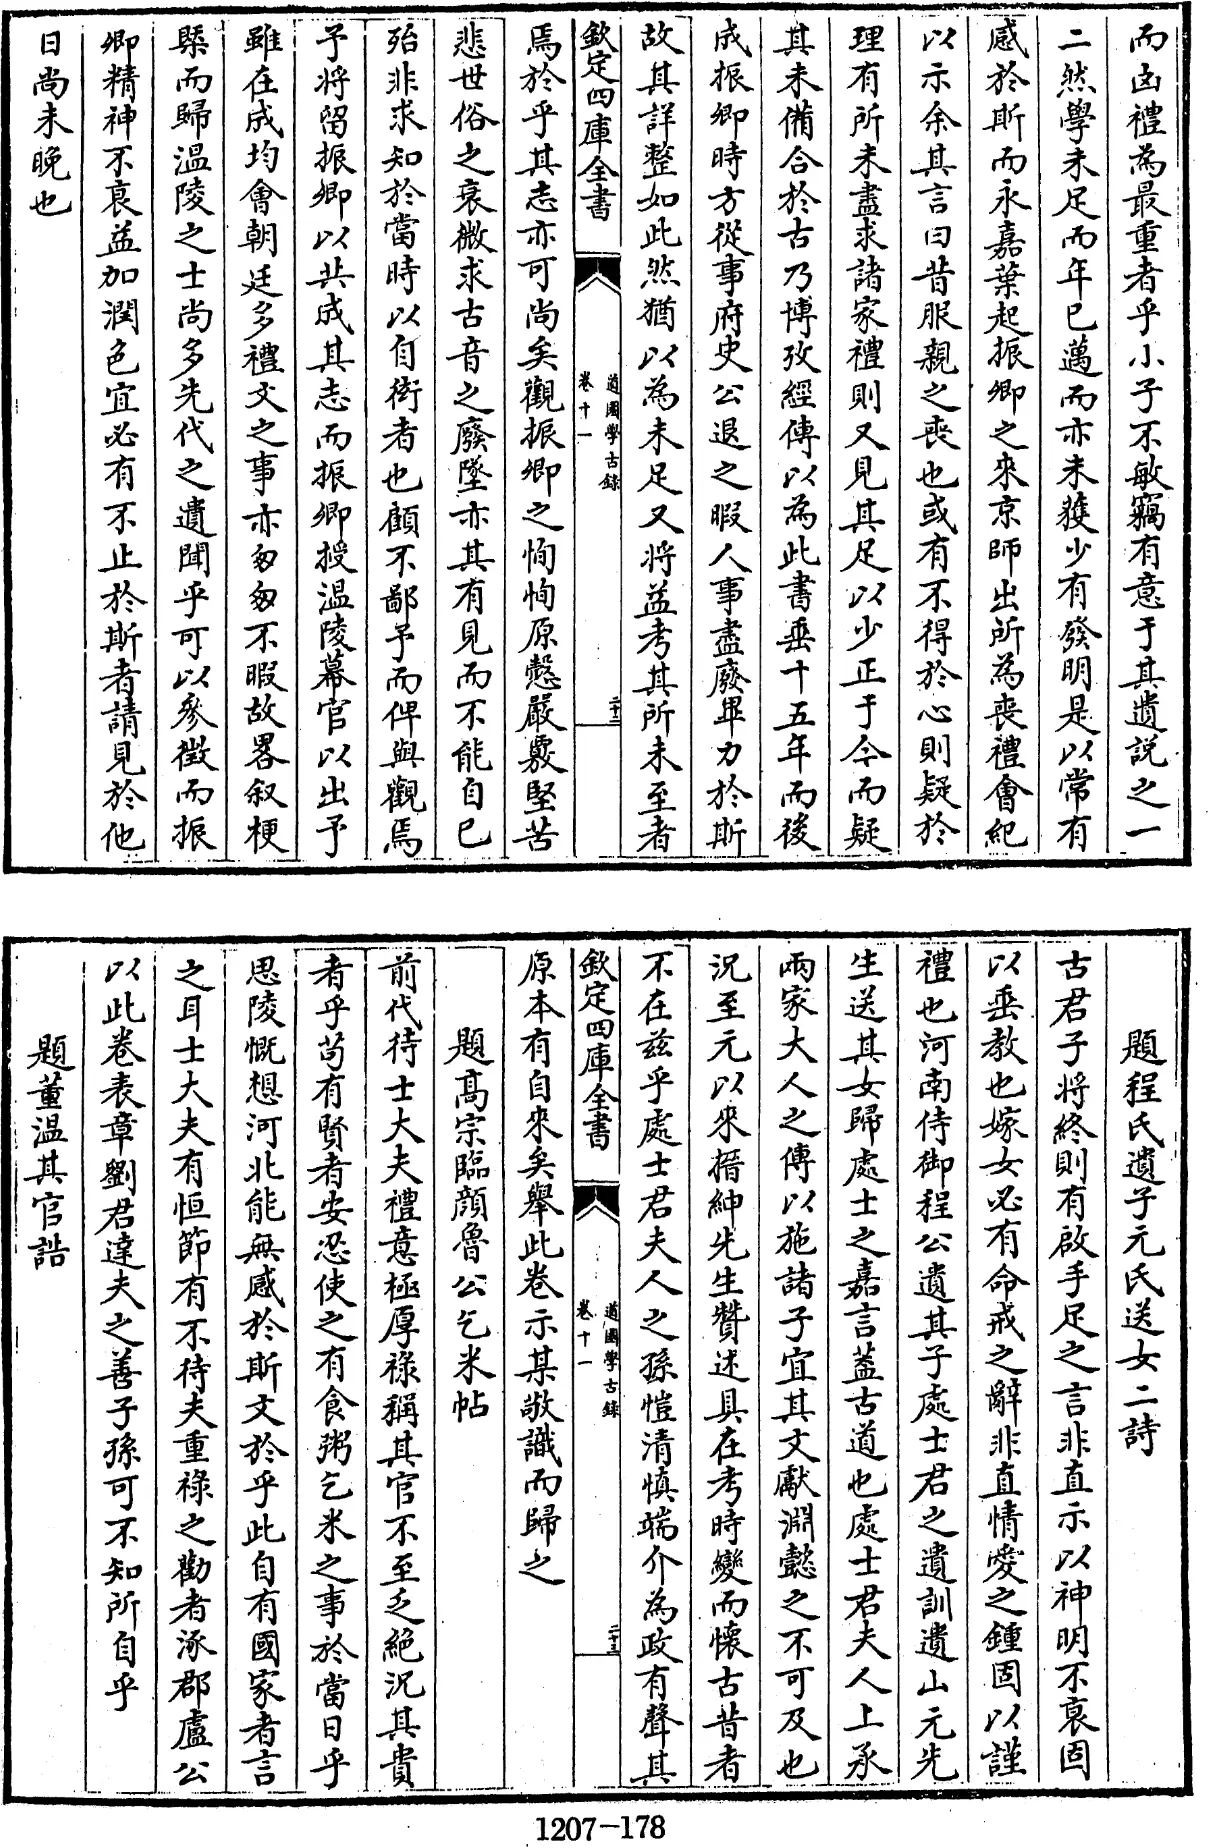 而凶禮為最重者乎小子不敏竊有意于其遺説之一
二然學未足而年已邁而亦未獲少有發明是以常有
感於斯而永嘉葉起振卿之來京師出所為喪禮會紀
以示余其言曰昔服親之喪也或有不得於心則疑於
理有所未盡求諸家禮則又見其足以少正于今而疑
其未備合於古乃博攷經傳以為此書垂十五年而後
成振卿時方從事府史公退之暇人事盡廢畢力於斯
故其詳整如此然猶以為未足又將益考其所未至者
欽定四庫全書
道園學古録
卷十一
二十二
焉於乎其志亦可尚矣觀振卿之恂恂原慤嚴覈堅苦
悲世俗之衰微求古音之廢墜亦其有見而不能自已
殆非求知於當時以自衒者也顧不鄙予而俾與觀焉
予將留振卿以共成其志而振卿授温陵幕官以出予
雖在成均會朝廷多禮文之事亦匆匆不暇故畧叙梗
槩而歸温陵之士尚多先代之遺聞乎可以參徴而振
卿精神不衰益加潤色宜必有不止於斯者請見於他
日尚未晚也
題程氏遺子元氏送女二詩
古君子將終則有啟手足之言非直示以神明不衰固
以垂教也嫁女必有命戒之辭非直情愛之鍾固以謹
禮也河南侍御程公遺其子處士君之遺訓遺山元先
生送其女歸處士之嘉言葢古道也處士君夫人上承
兩家大人之傳以施諸子宜其文獻淵懿之不可及也
況至元以來搢紳先生贊述具在考時變而懷古昔者
不在兹乎處士君夫人之孫愷清慎端介為政有聲其
欽定四庫全書
道園學古録
卷十一
二十三
原本有自來矣舉此卷示某敬識而歸之
題髙宗臨顔魯公乞米帖
前代待士大夫禮意極厚祿稱其官不至乏絶況其貴
者乎苟有賢者安忍使之有食粥乞米之事於當日乎
思陵慨想河北能無感於斯文於乎此自有國家者言
之耳士大夫有恒節有不待夫重祿之勸者涿郡盧公
以此卷表章劉君達夫之善子孫可不知所自乎
題董温其官誥
1207-178